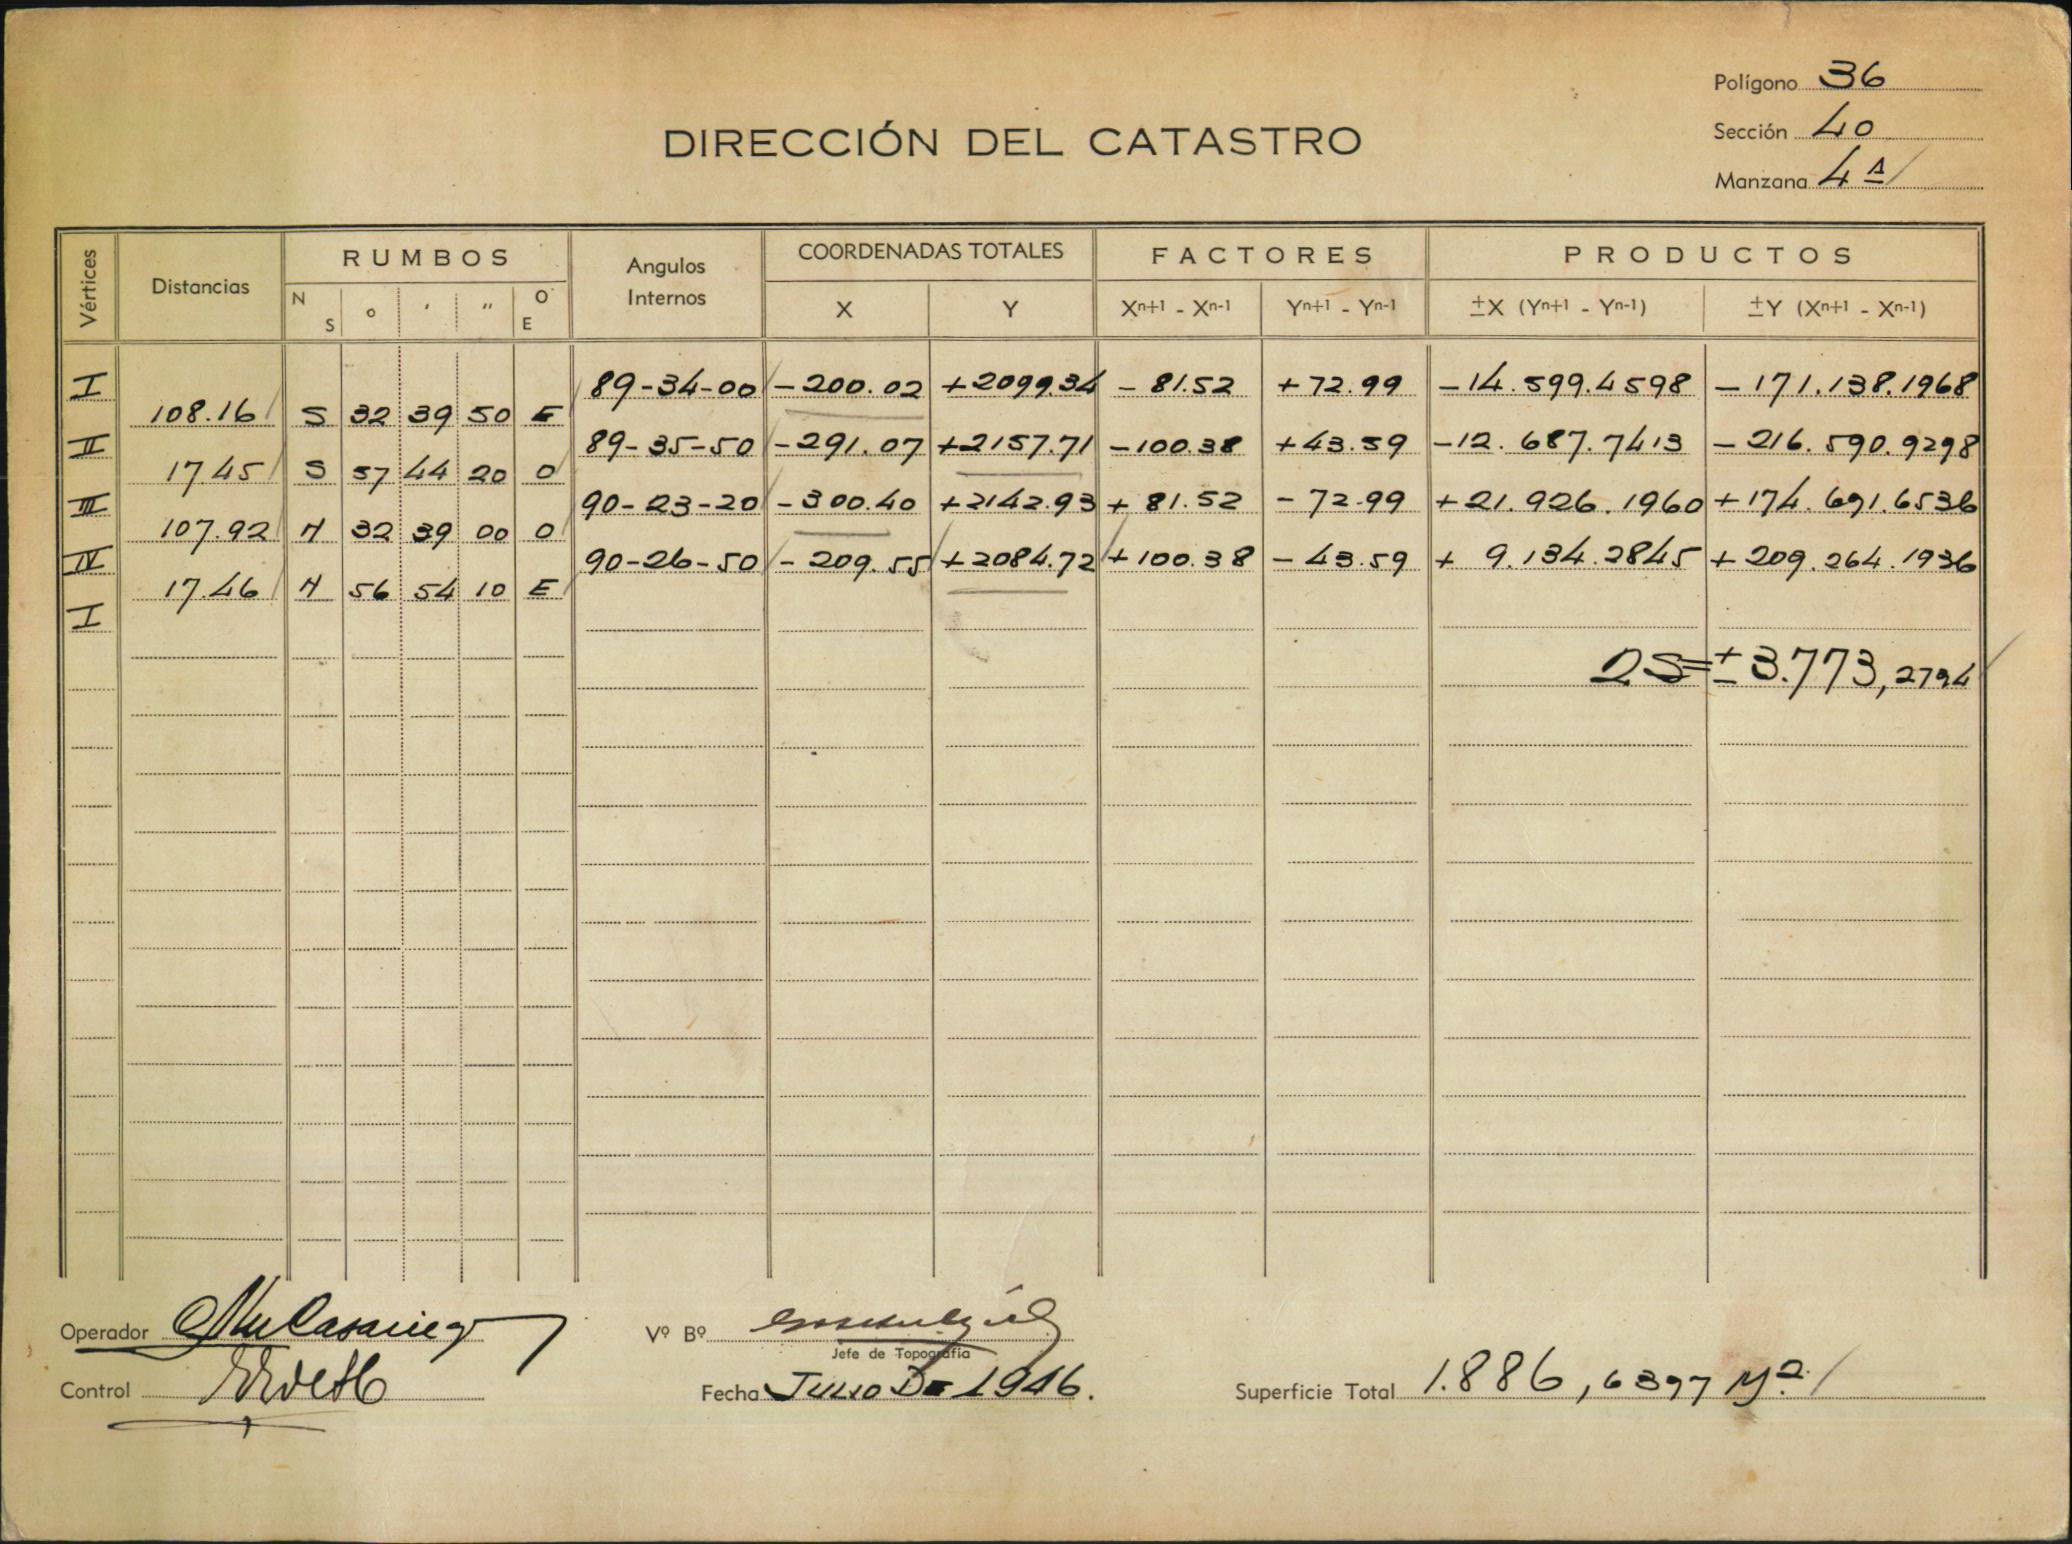 Polígono 36
Sección 40
Manzana 4ª
DIRECCIÓN DEL CATASTRO
Vértices Distancias RUMBOS Angulos Internos COORDENADAS TOTALES FACTORES PRODUCTOS
N S ° ' " O E X Y Xn+1 - Xn-1 Yn+1 - Yn-1 ±X (Yn+1 - Yn-1) ±Y (Xn+1 - Xn-1)
I 89-34-00 -200.02 +2099.34 -81.52 +72.99 -14.599.4598 -171.138.1968
108.16 S 32 39 50 E
II 89-35-50 -291.07 +2157.71 -100.38 +43.59 -12.687.7413 -216.590.9298
17.45 S 57 44 20 O
III 90-23-20 -300.40 +2142.93 +81.52 -72.99 +21.926.1960 +174.691.6536
107.92 N 32 39 00 O
IV 90-26-50 -209.55 +2084.72 +100.38 -43.59 +9.134.2845 +209.264.1936
17.46 N 56 54 10 E
I
2S=±3.773,2794
Operador
Vº Bº
Jefe de Topografía
Control
Fecha Julio De 1946.
Superficie Total 1.886,6397 M2.